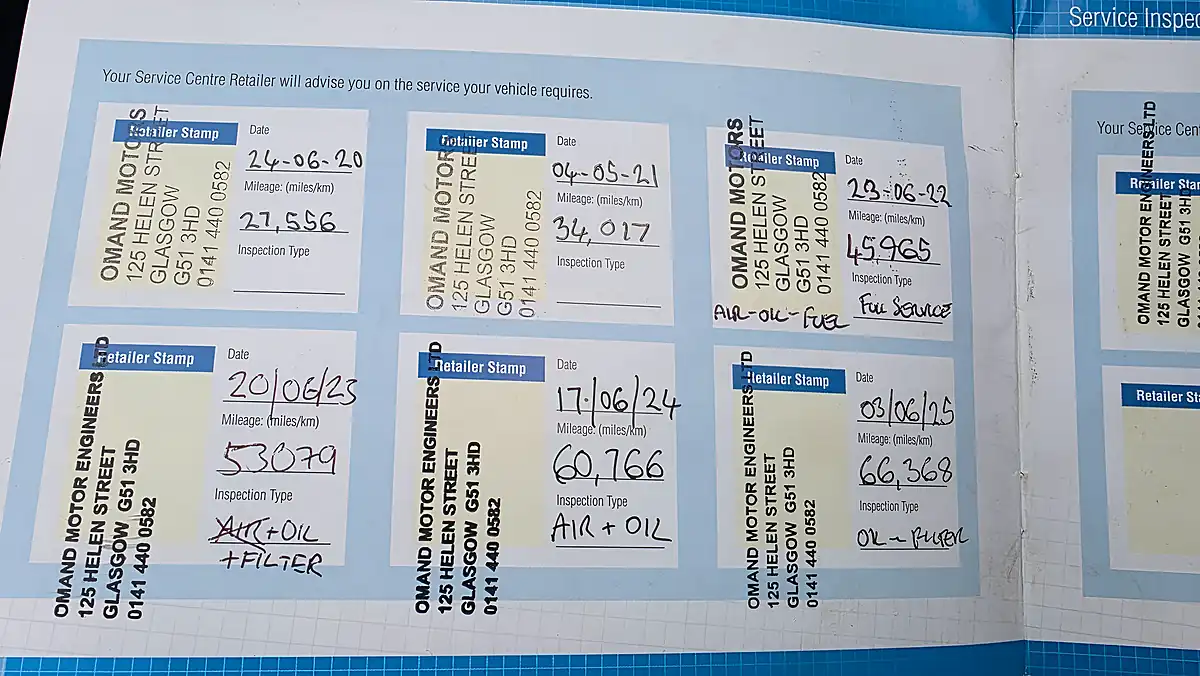 Service Inspec
Your Service Centre Retailer will advise you on the service your vehicle requires.
Retailer Stamp
OMAND MOTORS
125 HELEN STREET
GLASGOW
G51 3HD
0141 440 0582
Date
24-06-20
Mileage: (miles/km)
27,556
Inspection Type
Retailer Stamp
OMAND MOTORS
125 HELEN STREET
GLASGOW
G51 3HD
0141 440 0582
Date
04-05-21
Mileage: (miles/km)
34,017
Inspection Type
Retailer Stamp
OMAND MOTORS
125 HELEN STREET
GLASGOW
G51 3HD
0141 440 0582
Date
23-06-22
Mileage: (miles/km)
45,965
Inspection Type
FULL SERVICE
AIR-OIL-FUEL
Retailer Stamp
OMAND MOTOR ENGINEERS LTD
125 HELEN STREET
GLASGOW G51 3HD
0141 440 0582
Date
20/06/23
Mileage: (miles/km)
53079
Inspection Type
AIR+OIL
+FILTER
Retailer Stamp
OMAND MOTOR ENGINEERS LTD
125 HELEN STREET
GLASGOW G51 3HD
0141 440 0582
Date
17/06/24
Mileage: (miles/km)
60,766
Inspection Type
AIR + OIL
Retailer Stamp
OMAND MOTOR ENGINEERS LTD
125 HELEN STREET
GLASGOW G51 3HD
0141 440 0582
Date
03/06/25
Mileage: (miles/km)
66,368
Inspection Type
OIL - FILTER
Your Service Cent
Retailer Sta
OMAND MOTOR ENGINEERS LTD
125 HELEN STREET
GLASGOW G51 3HD
Retailer Sta